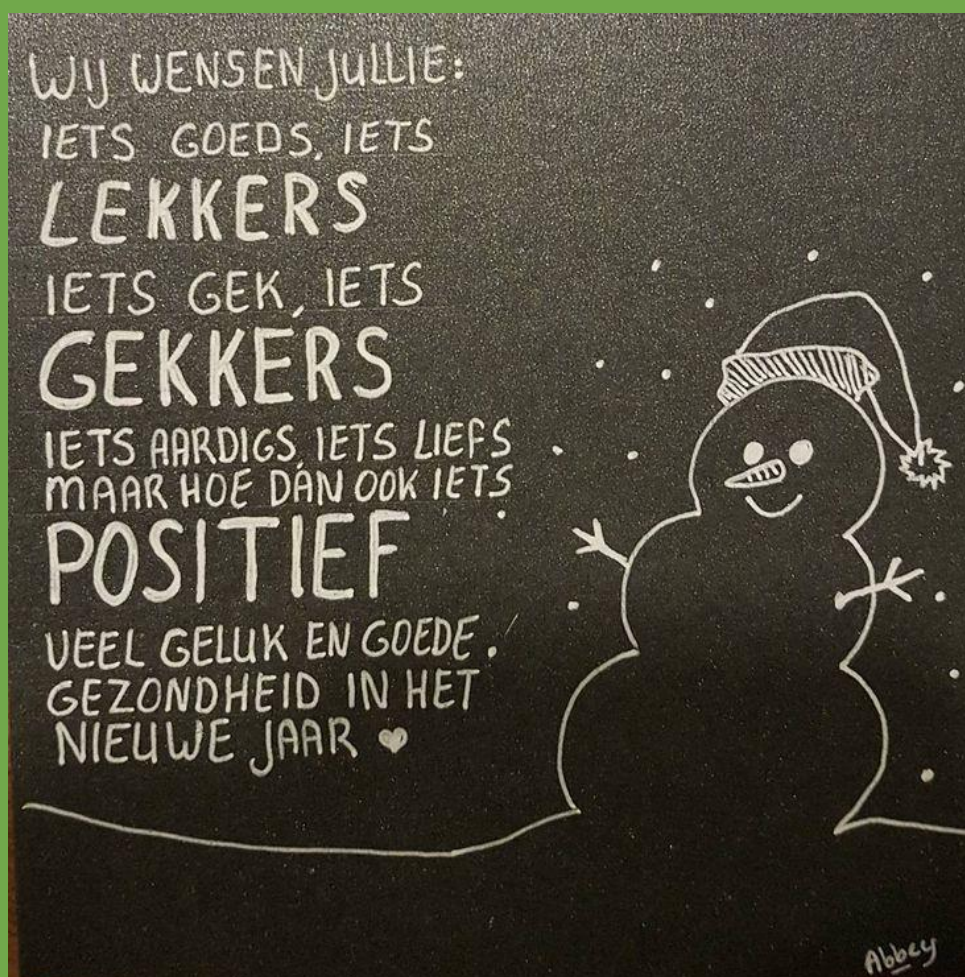 WIJ WENSEN JULLIE:
IETS GOEDS, IETS
LEKKERS
IETS GEK, IETS
GEKKERS
IETS AARDIGS, IETS LIEFS
MAAR HOE DAN OOK IETS
POSITIEF
VEEL GELUK EN GOEDE
GEZONDHEID IN HET
NIEUWE JAAR ♥
Abbey